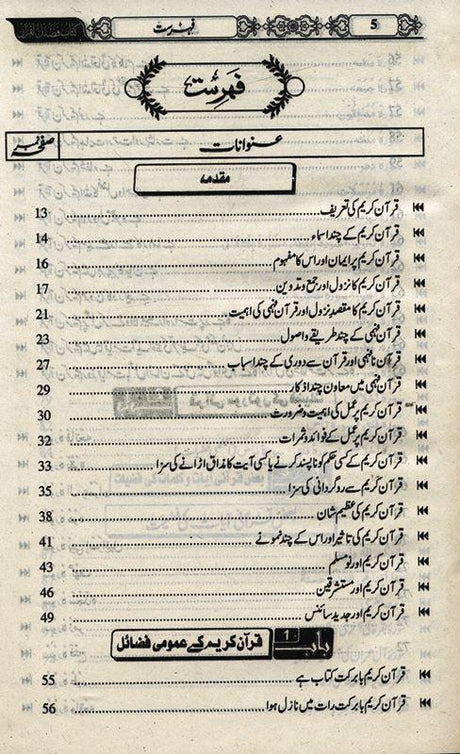 کتاب فضائل القرآن
فہرست
5
فہرست
عنوانات
صفحہ نمبر
مقدمہ
قرآن کریم کی تعریف 13
قرآن کریم کے چند اسماء 14
قرآن کریم پر ایمان اور اس کا مفہوم 16
قرآن کریم کا نزول اور جمع و تدوین 17
قرآن کریم کا مقصدِ نزول اور قرآن فہمی کی اہمیت 21
قرآن فہمی کے چند طریقے و اصول 23
قرآن نافہمی اور قرآن سے دوری کے چند اسباب 27
قرآن فہمی میں معاون چند اذکار 29
قرآن کریم پر عمل کی اہمیت و ضرورت 30
قرآن کریم پر عمل کے فوائد و ثمرات 32
قرآن کریم کے کسی حکم کو ناپسند کرنے یا کسی آیت کا مذاق اڑانے کی سزا 33
قرآن کریم سے روگردانی کی سزا 35
قرآن کریم کی عظیم شان 38
قرآن کریم کی تاثیر اور اس کے چند نمونے 41
قرآن کریم اور نو مسلم 43
قرآن کریم اور مستشرقین 46
قرآن کریم اور جدید سائنس 49
باب 1 قرآن کریم کے عمومی فضائل
قرآن کریم بابرکت کتاب ہے 55
قرآن کریم بابرکت رات میں نازل ہوا 56